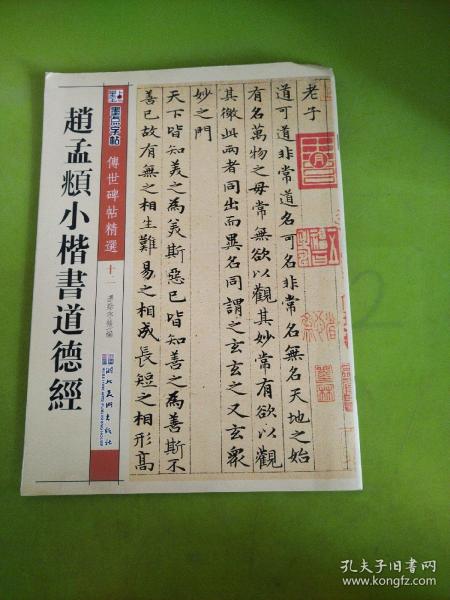 趙孟頫小楷書道德經
墨点字帖
傳世碑帖精選
十二
湖北美術出版社
老子
道可道非常道名可名非常名無名天地之始
有名萬物之母常無欲以觀其妙常有欲以觀
其徼此兩者同出而異名同謂之玄玄之又玄衆
妙之門
天下皆知美之為美斯惡已皆知善之為善斯不
善已故有無之相生難易之相成長短之相形高
孔夫子旧书网
www.kongfz.com